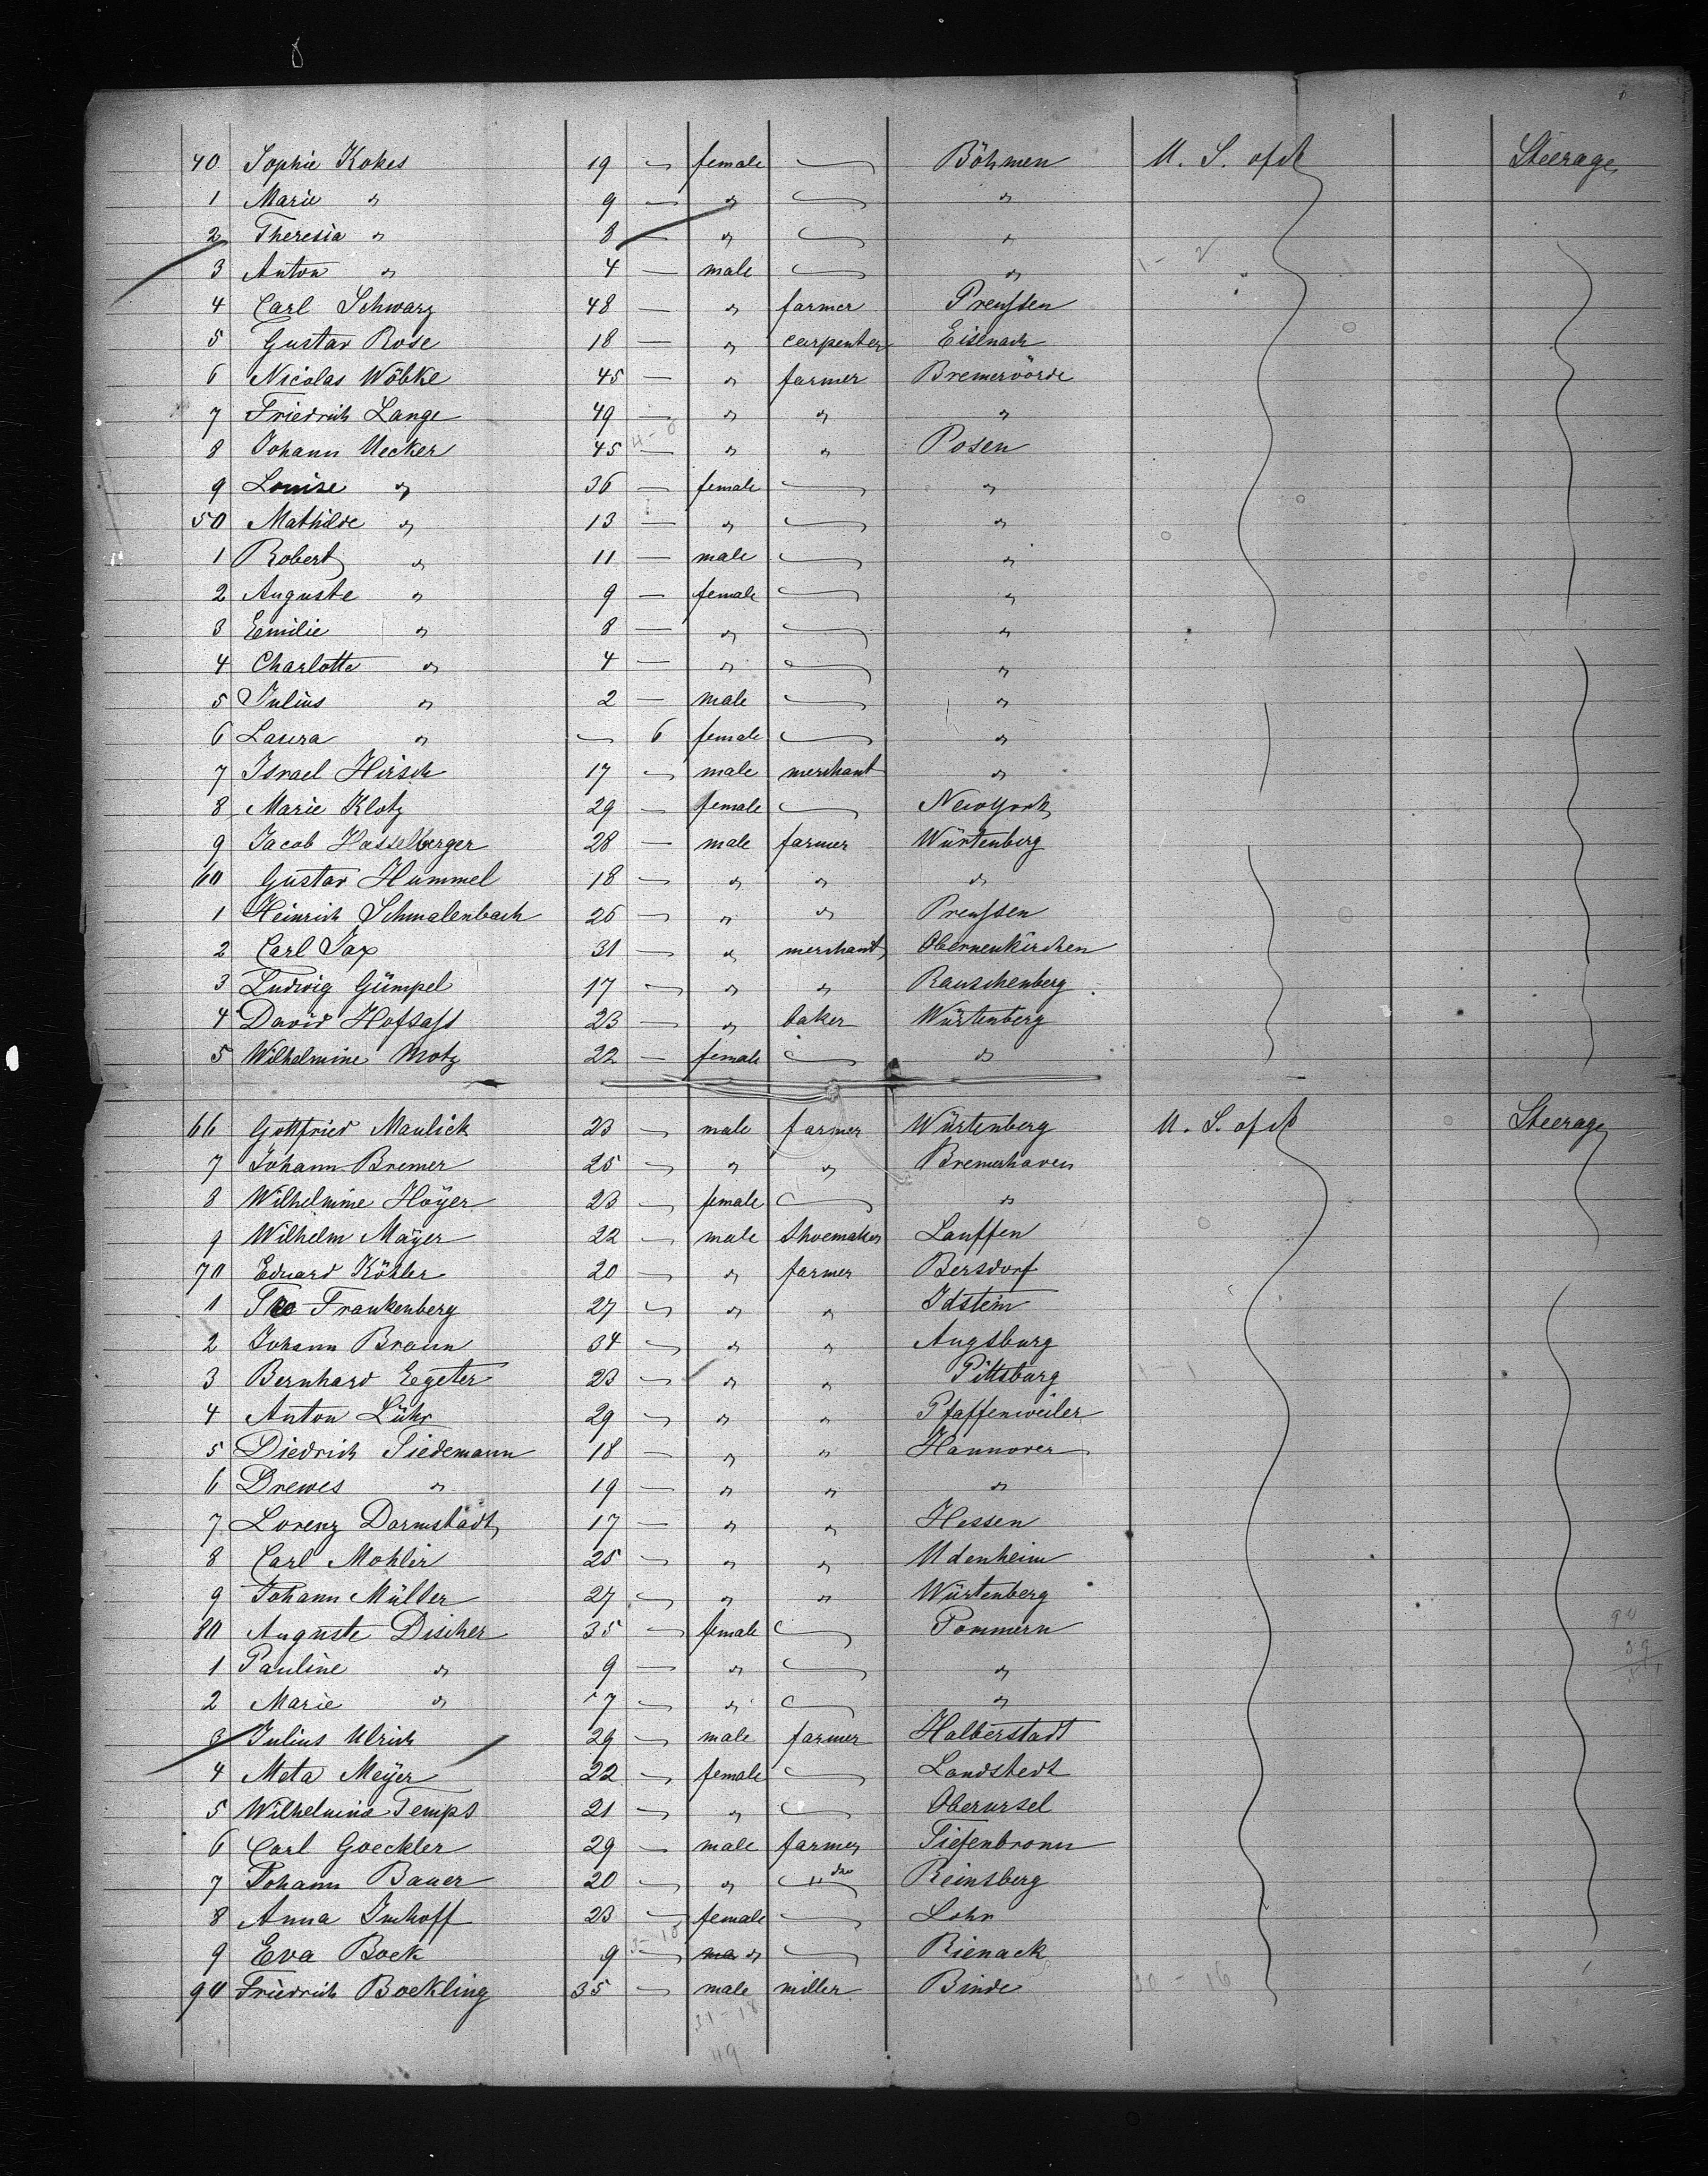 40 Sophie Kokes 19 — female — Böhmen U. S. of A Steerage
1 Marie " 9 — " — "
2 Theresia " 8 — " — "
3 Anton " 4 — male — "
4 Carl Schwarz 48 — " farmer Preußen
5 Gustav Rose 18 — " carpenter Eisenach
6 Nicolas Wöbke 45 — " farmer Bremervörde
7 Friedrich Lange 49 — " " "
8 Johann Uecker 45 — " " Posen
9 Louise " 36 — female — "
50 Mathilde " 13 — " — "
1 Robert " 11 — male — "
2 Auguste " 9 — female — "
3 Emilie " 8 — " — "
4 Charlotte " 4 — " — "
5 Julius " 2 — male — "
6 Laura " — 6 female — "
7 Israel Hirsch 17 — male merchant "
8 Marie Klotz 29 — female — NewYork
9 Jacob Hasselberger 28 — male farmer Würtenberg
60 Gustav Hummel 18 — " " "
1 Heinrich Schmalenbach 26 — " " Preußen
2 Carl Sax 31 — " merchant Obernenkirchen
3 Ludwig Gümpel 17 — " " Rauschenberg
4 David Hofsaß 23 — " baker Würtenberg
5 Wilhelmine Motz 22 — female — "
66 Gottfried Maulick 23 — male farmer Würtenberg U. S. of A Steerage
7 Johann Bremer 25 — " " Bremerhaven
8 Wilhelmine Hoÿer 23 — female — "
9 Wilhelm Maÿer 22 — male Shoemaker Lauffen
70 Eduard Köhler 20 — " farmer Bersdorf
1 Frankenberg 27 — " " Idstein
2 Johann Braun 34 — " " Augsburg
3 Bernhard Eegeter 23 — " " Pittsburg
4 Anton Lühr 29 — " " Pfaffenweiler
5 Diedrich Tiedemann 18 — " " Hannover
6 Drewes " 19 — " " "
7 Lorenz Darmstadt 17 — " " Hessen
8 Carl Mohlir 25 — " " Udenheim
9 Johann Müller 27 — " " Würtenberg
80 Auguste Discher 35 — female — Pommern
1 Pauline " 9 — " — "
2 Marie " 7 — " — "
3 Julius Ulrich 29 — male farmer Halberstadt
4 Meta Meÿer 22 — female — Landstedt
5 Wilhelmine Temps 21 — " — Oberursel
6 Carl Goeckler 29 — male farmer Tiefenbronn
7 Johann Bauer 20 — " " do Reinsberg
8 Anna Imhoff 23 — female — Lohr
9 Eva Boek 9 — ma " — Rienack
90 Friedrich Boekling 35 — male miller Binde
31-18
49